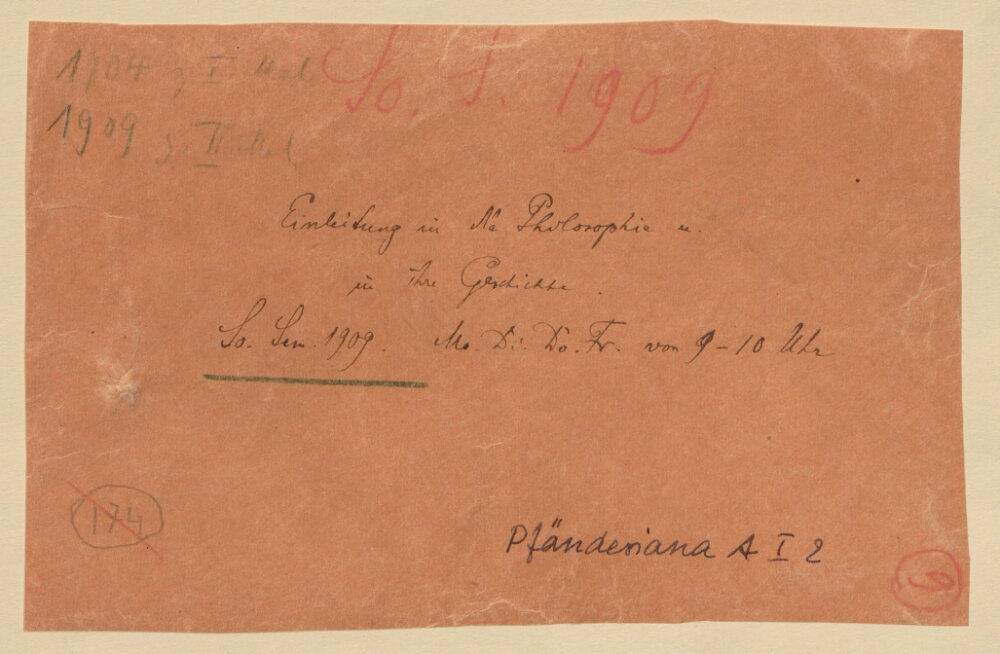 1904 z. I. Mal
So. S. 1909
1909 z. II. Mal
Einleitung in die Philosophie u.
in ihre Geschichte.
So. Sem. 1909. Mo. Di. Do. Fr. von 9-10 Uhr
174
Pfänderiana A I 2